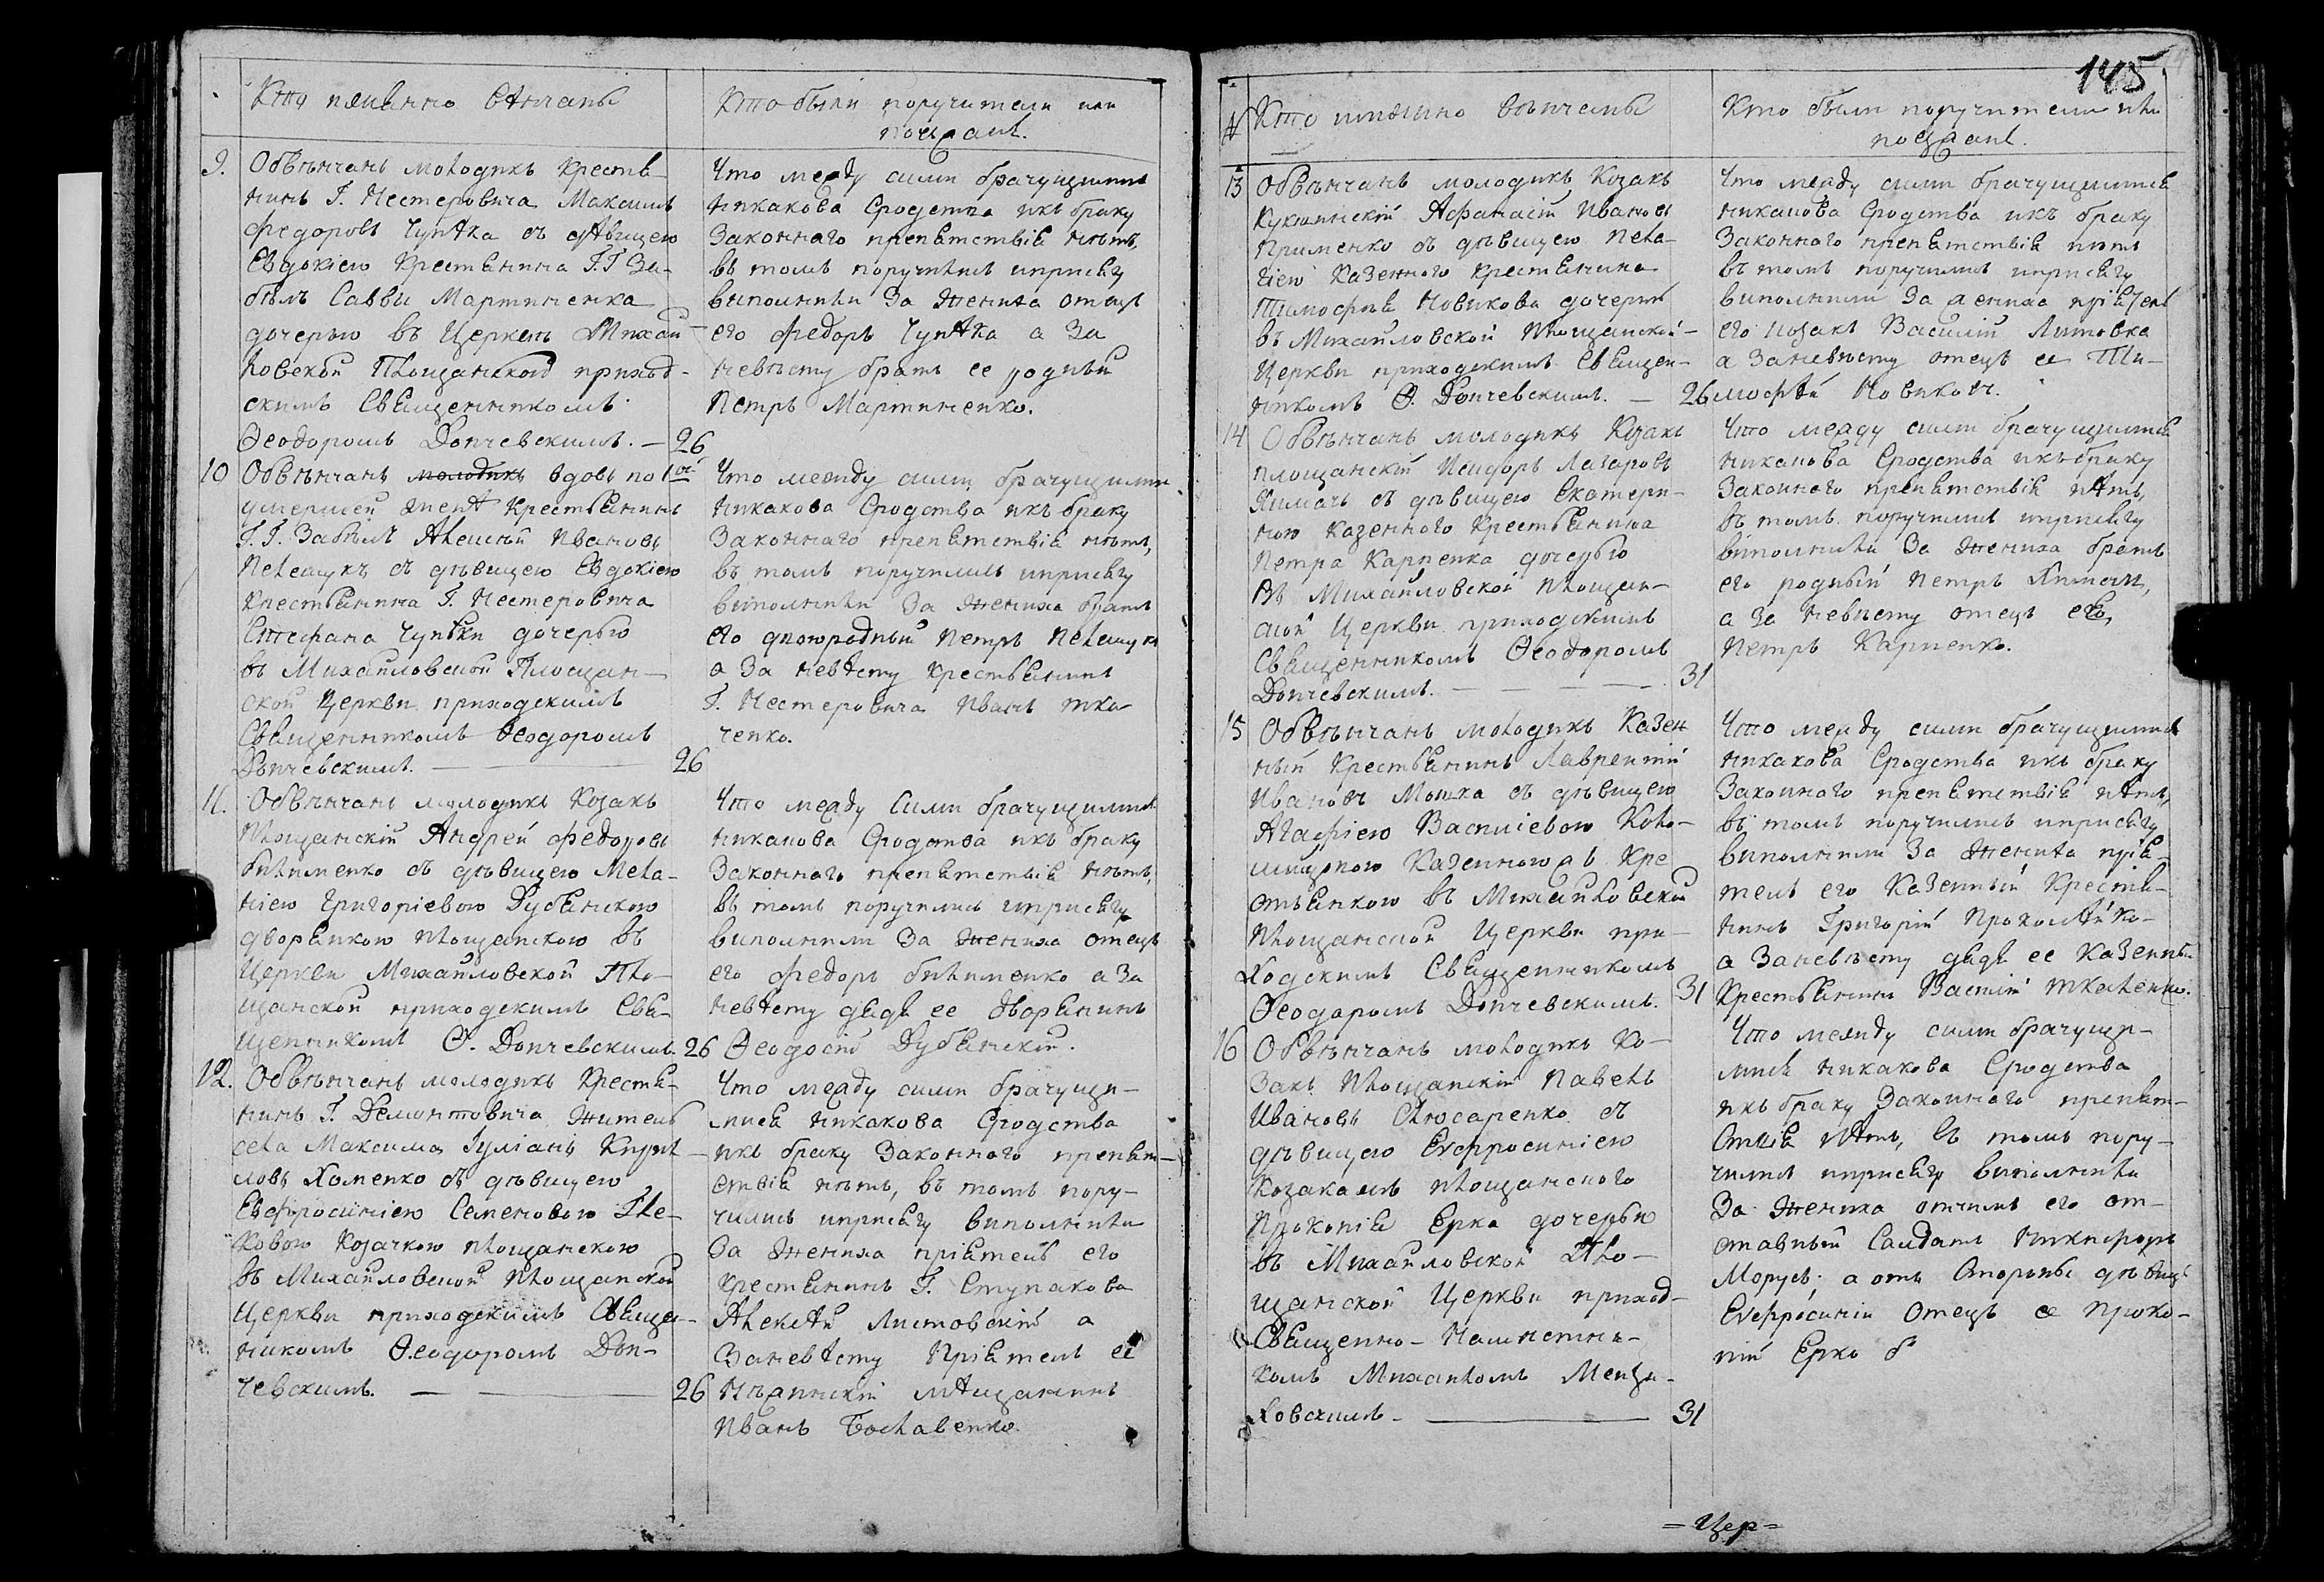 Кто имянно вѣнчаны
Кто были поручители или
поезжанѣ.
9.
Обвѣнчанъ молодикъ крестья-
нинъ Г. Нестеровича Максимъ
Федоровъ Чупѣка съ дѣвицею
Евдокіею крестьянина Г. Г. За-
бѣлъ Саввы Мартиненка
дочерью въ Церквѣ Михай-
ловской Площанской приход-
скимъ Священникомъ
Ѳеодоромъ Дончевскимъ. — 26
Что между сими брачущимися
никакова Сродства икъ браку
Законнаго препятствія нѣтъ,
въ томъ поручились иприсягу
виполнили За жениха отецъ
его Федоръ Чупѣка а За
невѣсту братъ ее родный
Петръ Мартиненко.
10
Обвѣнчанъ молодикъ вдовъ по 1ой
умершей женѣ крестьянинъ
Г. Г. Забѣлъ Алексѣй Ивановъ
Пелещукъ съ дѣвицею Евдокіею
Крестьянина Г. Нестеровича
Стефана Чупѣки дочерью
въ Михайловской Площан-
ской Церкви приходскимъ
Священникомъ Ѳеодоромъ
Дончевскимъ. — 26
Что между сими брачущимися
никакова Сродства икъ браку
Законнаго препятствія нѣтъ,
въ томъ поручились иприсягу
виполнили За жениха братъ
его двоюродный Петръ Пелещукъ
а За невѣсту крестьянинъ
Г. Нестеровича Иванъ тка-
ченко.
11.
Обвѣнчанъ молодикъ Козакъ
Площанскій Андрей Федоровъ
билименко съ дѣвицею Мела-
ніею Григоріевою Дубянскою
дворянкою площанскою въ
Церкви Михайловской Пло-
щанской приходскимъ Свя-
щенникомъ Ѳ. Дончевскимъ. 26
Что между Сими брачущимися
никакова Сродства икъ браку
Законнаго препятствія нѣтъ,
въ томъ поручились иприсягу
виполнили За жениха отецъ
его Федоръ билименко а За
невѣсту дядя ее дворянинъ
Ѳеодосій Дубянскій.
12.
Обвѣнчанъ молодикъ крестья-
нинъ Г. Демонтовича житель
села Максима Іуліанъ Кирил-
ловъ Хоменко съ дѣвицею
Евфросиніею Семеновою
ковою Козачкою площанскою
въ Михайловской Площанской
Церкви приходскимъ Священ-
никомъ Ѳеодоромъ Дон-
чевскимъ. — 26
Что между сими брачущи-
мися никакова Сродства
икъ браку Законнаго препят-
ствія нѣтъ, въ томъ пору-
чились иприсягу виполнили
За жениха пріятель его
крестьянинъ Г. Ступакова
Алексѣй Листовскій а
Заневѣсту Пріятель ее
Нѣжинскій мѣщанинъ
Иванъ
145.
№
Кто имянно вѣнчаны
Кто были поручители или
поезжанѣ.
13
Обвѣнчанъ молодикъ Козакъ
Афанасій Ивановъ
Применко съ дѣвицею Пела-
гіею Казенного крестьянина
Тимофѣя Новикова дочерью
въ Михайловской Площанской
Церкви приходскимъ Священ-
никомъ Ѳ. Дончевскимъ. — 26
Что между сими брачущимися
никакова Сродства икъ браку
Законного препятствія нѣтъ
въ томъ поручились иприсягу
виполнили За жениха пріятель
его козакъ Василій Литовка
а Заневѣсту отецъ ее Ти-
мофѣй Новиковъ.
14
Обвѣнчанъ молодикъ Козакъ
площанскій Исидоръ Лазаровъ
Химачъ съ дѣвицею Екатери-
ною казенного крестьянина
Петра Карпенка дочерью
Въ Михайловской Площан-
ской Церкви приходскимъ
Священникомъ Ѳеодоромъ
Дончевскимъ. — 31
Что между сими брачущимися
никакова Сродства икъ браку
Законного препятствія нѣтъ,
въ томъ поручились иприсягу
виполнили За жениха братъ
его родный Петръ Химачъ,
а За невѣсту отецъ его,
Петръ Карпенко.
15
Обвѣнчанъ молодикъ Казен-
ный Крестьянинъ Лаврентій
Ивановъ Мошка съ дѣвицею
Агафіею Василіевою Коло-
Казенною Кре-
стьянкою въ Михайловской
Площанской Церкви при-
ходскимъ Священникомъ
Ѳеодоромъ Дончевскимъ. 31
Что между сими брачущимися
никакова Сродства икъ браку
Законного препятствія нѣтъ,
въ томъ поручились иприсягу
виполнили За жениха прія-
тель его Казенный Крестья-
нинъ Григорій
а Заневѣсту дядя ее Казенный
крестьянинъ Василій ткаленко.
16
Обвѣнчанъ молодикъ Ко-
закъ Площанскій Павелъ
Ивановъ Слюсаренко съ
дѣвицею Евфросиніею
Козака Площанского
Прокопія Ерка дочерью
въ Михайловской Пло-
щанской Церкви приход-
Священно- Намѣстни-
комъ Михаиломъ Менжи-
ловскимъ — 31
Что между сими брачущи-
мися никакова Сродства
икъ браку Законного препят-
ствія нѣтъ, въ томъ пору-
чились иприсягу виполнили
За жениха отчимъ его от-
ставный Салдатъ Никифоръ
Морусь; а отъ Стороны дѣвицы
Евфросиніи Отецъ ее Проко-
пій Ерко
= Цер =